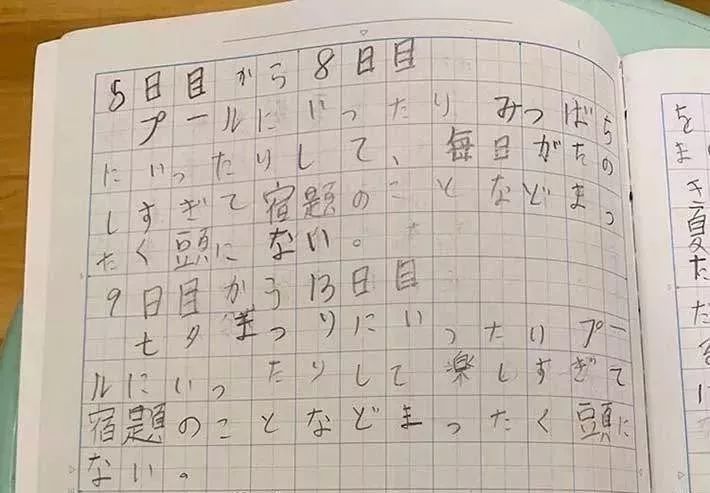 5日目から8日目
プールにいったり みつばち
にいったりして、毎日がたの
しすぎて宿題のことなどまっ
たく頭にない。
9日目から13日目
七夕まつりにいったりプー
ルにいったりして楽しすぎて
宿題のことなどまったく頭に
ない。
を
ま
き
夏
た
だ